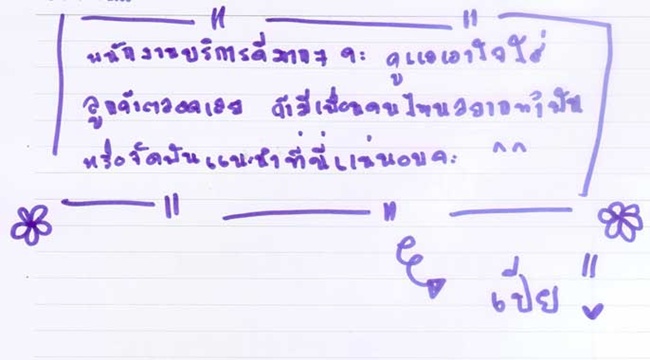 พนักงานบริการดีมากๆ คะ ดูแลเอาใจใส่
ลูกค้าตลอดเลย ถ้ามีเพื่อนคนไหนอยากทำฟัน
หรือจัดฟันแนะนำที่นี่แน่นอนคะ ^^
เปีย